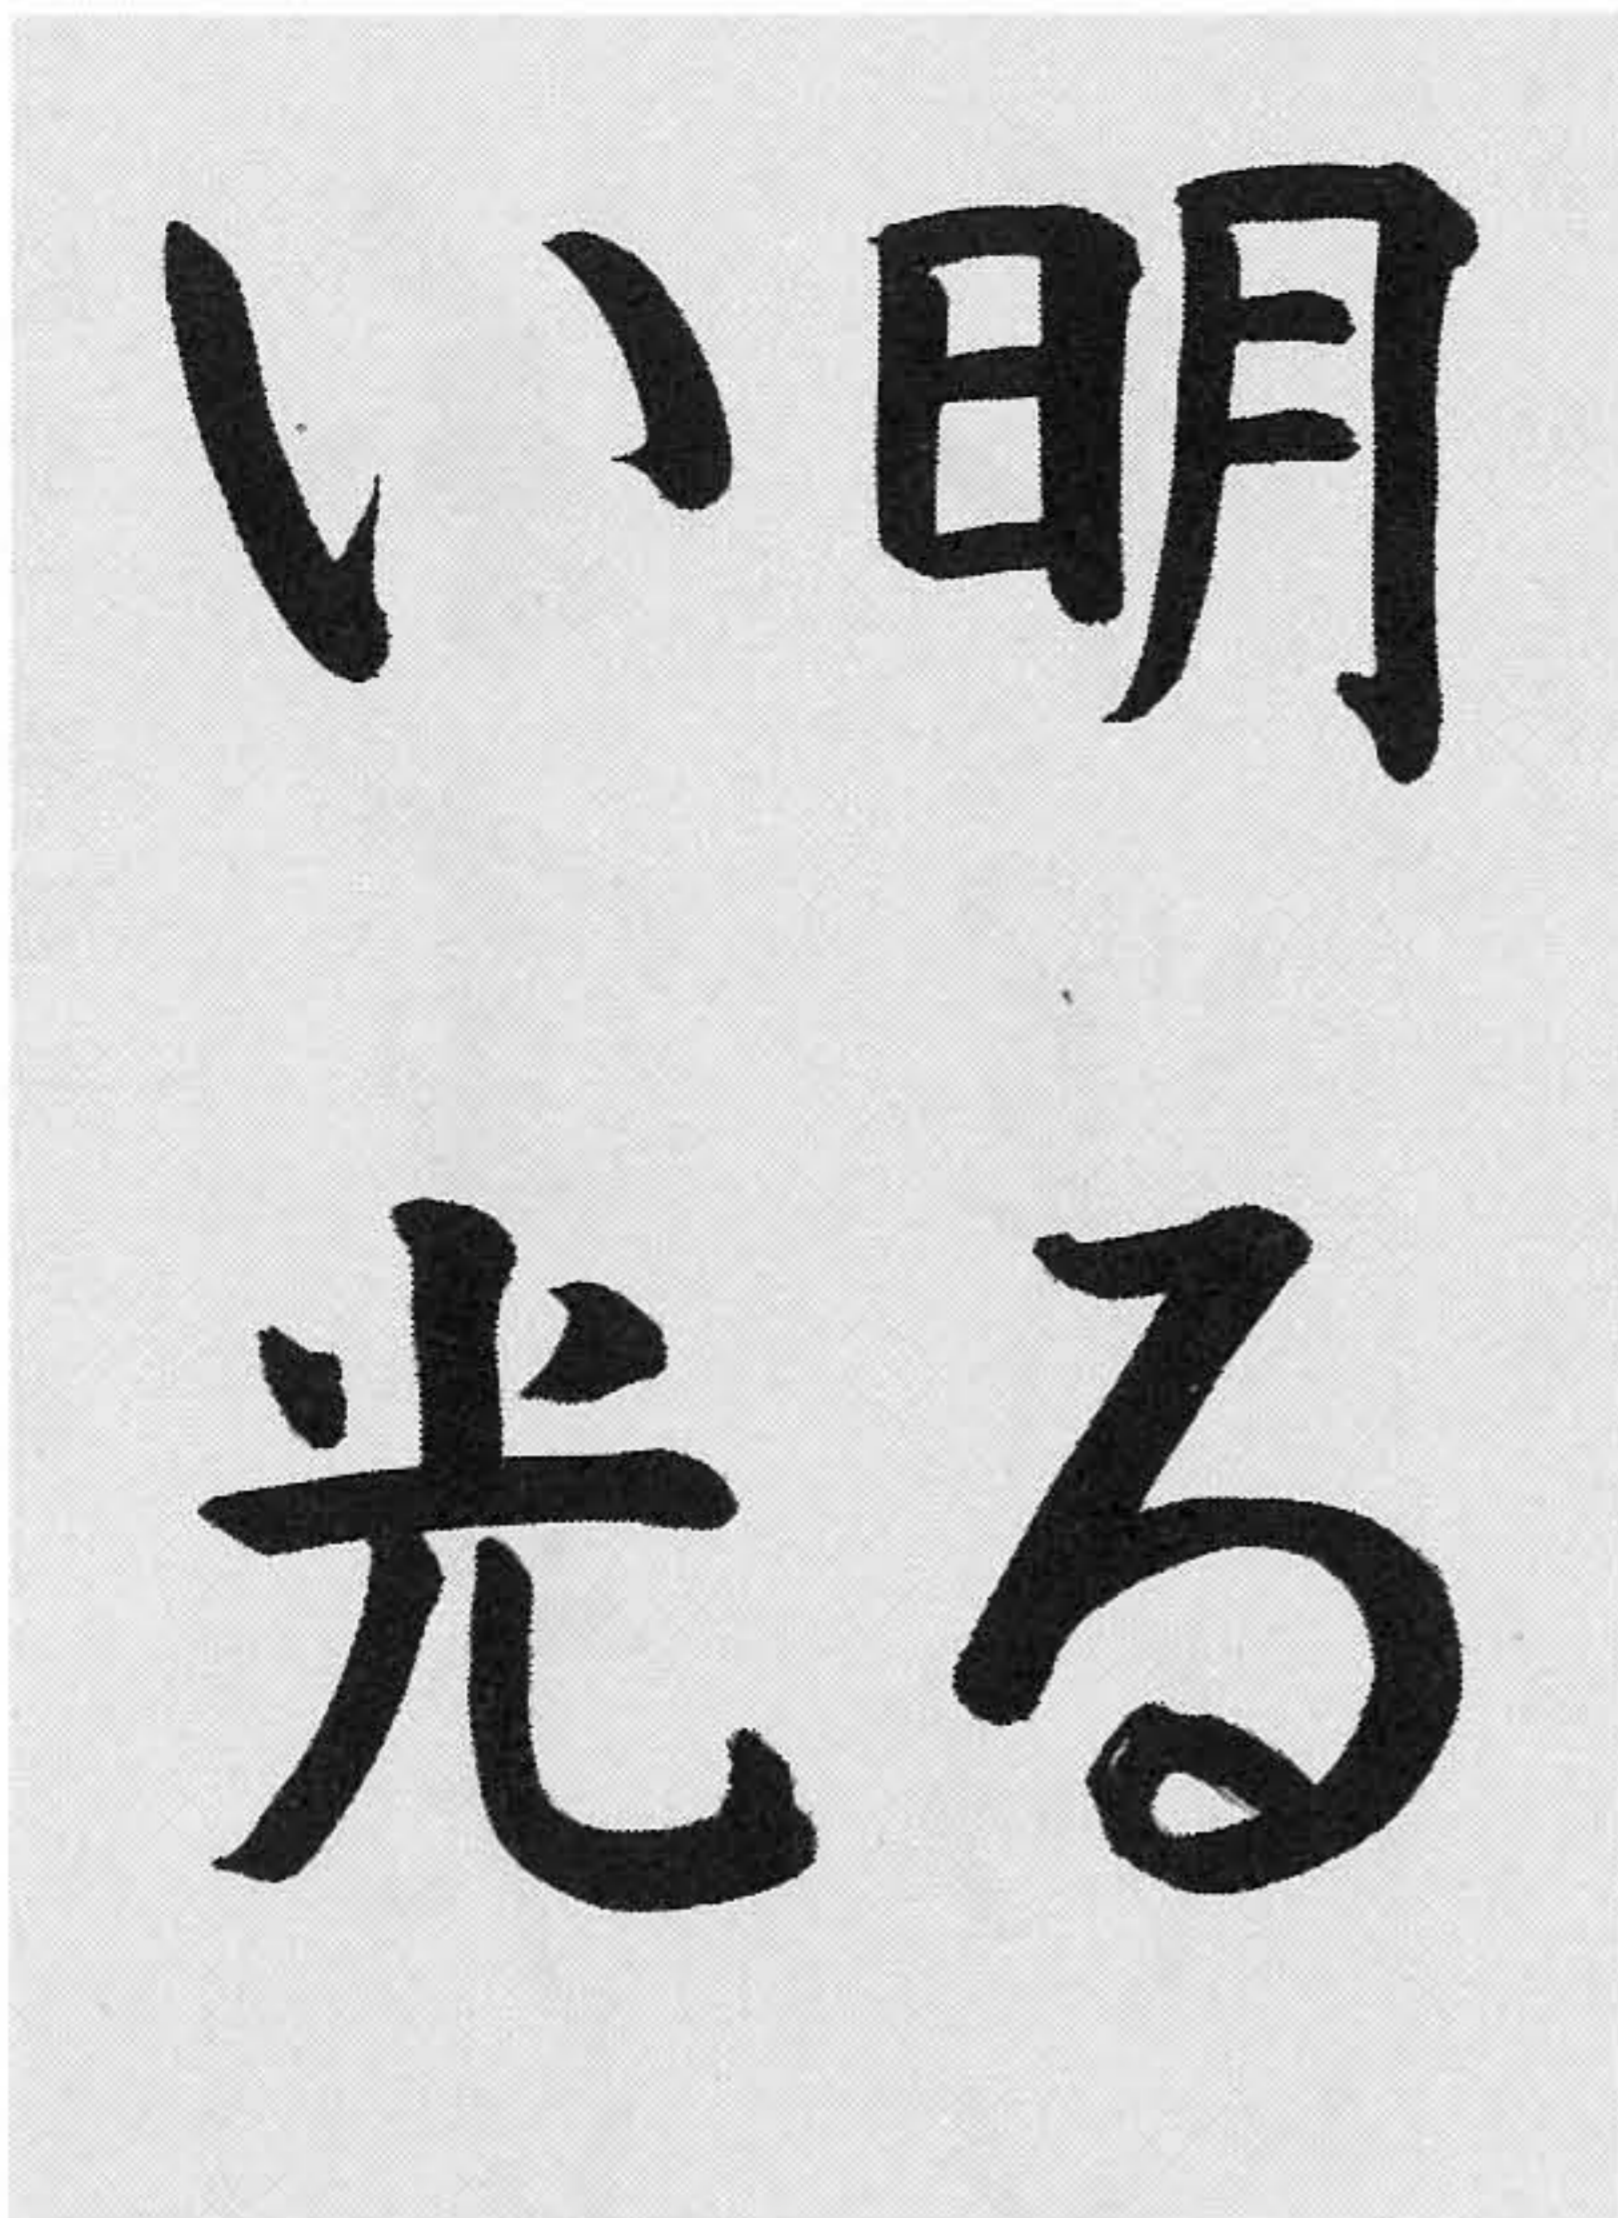 明る
い光